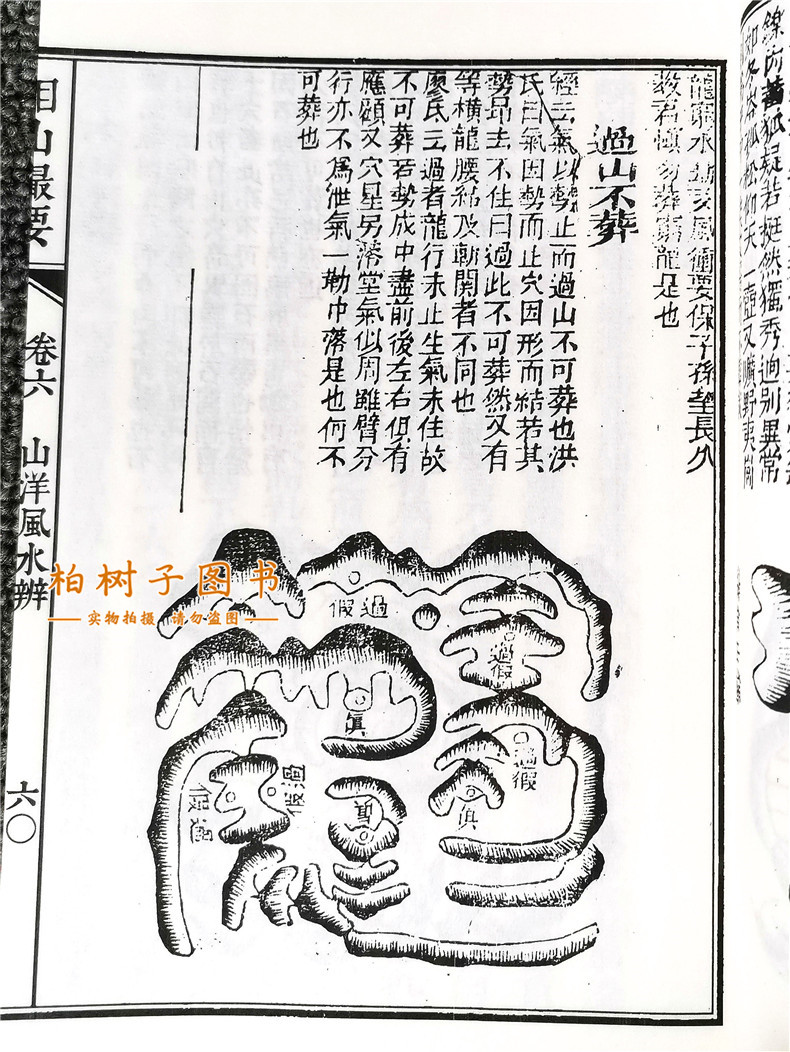 蓄狐疑若挺然獨秀迥別異常
孤松仰天一壺又曠野夷
龍窮水風衝要保子孫望長久
教君慎勿葬窮龍是也
過山不葬
經云氣以勢止而過山不可葬也洪
氏曰氣因勢而止穴因形而結若其
勢昂去不住曰過此不可葬然又有
等橫龍腰結及斬關者不同也
廖氏云過者龍行未止生氣未住故
不可葬若勢成中盡前後左右俱有
應顧又穴星另落堂氣似周雖臂分
行亦不爲泄氣一勒中落是也何不
可葬也
過假
過假
眞
過假
眞
過假
過假
眞
山撮要
卷六
山洋風水辨
六〇
柏树子图书
实物拍摄 请勿盗图